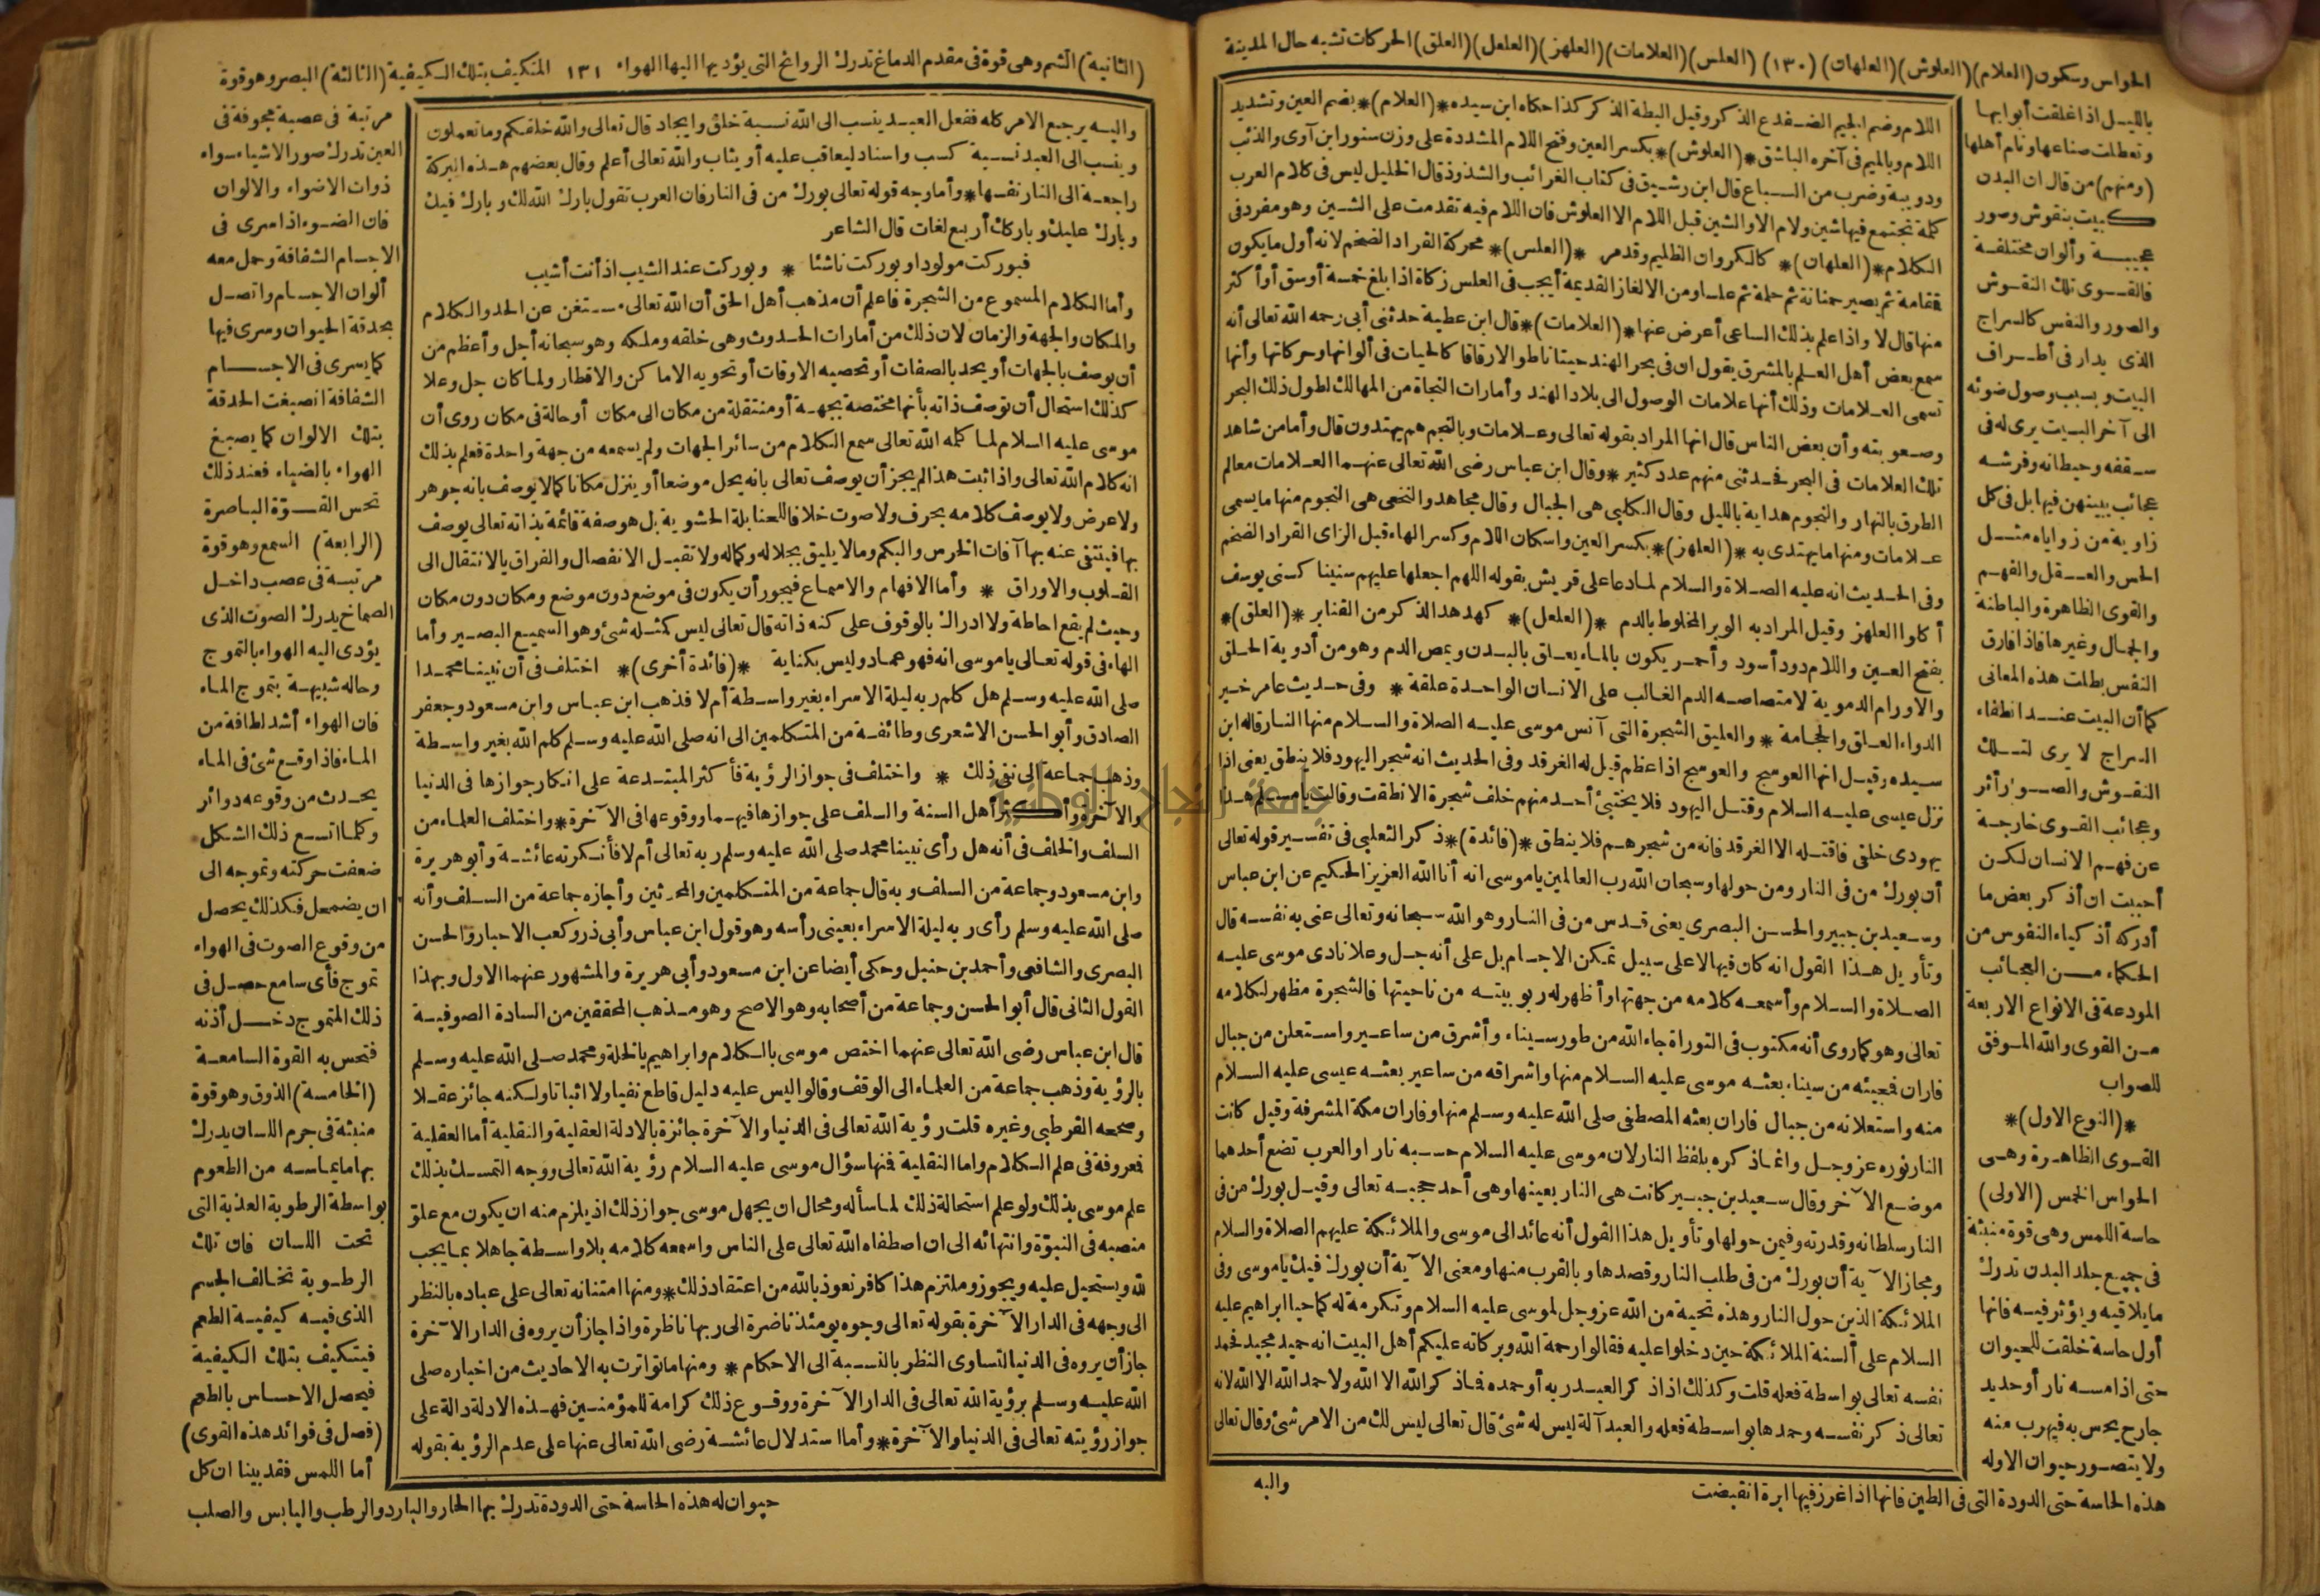 الحواس وسكون (العلام) (العلوش) (العلهان) (١٣٠) (العلس) (العلامات) (العلهز) (العلعل) (العلق) الحركات تشبه حال المدينة
اللام وضم الجيم الضفدع الذكر وقيل البطة الذكر كذا حكاه ابن سيده * (العلام) * بضم العين وتشديد
اللام وبالميم فى آخره الباشق * (العلوش) * بكسر العين وفتح اللام المشددة على وزن سنور ابن آوى والذئب
ودويبة وضرب من السباع قال ابن رشيق فى كتاب الغرائب والشذوذ قال الخليل ليس فى كلام العرب
كلمة تجتمع فيها شين ولام الا والشين قبل اللام الا العلوش فان اللام فيه تقدمت على الشين وهو مفرد فى
الكلام * (العلهان) * كالكروان الظليم وقد مر * (العلس) * محركة القراد الضخم لانه أول ما يكون
قمقامة ثم يصير حمنانة ثم حلمة ثم علسا ومن الالغاز القديمة أيجب فى العلس زكاة اذا بلغ خمسة أوسق أو أكثر
منها قال لا واذا علم بذلك الساعى أعرض عنها * (العلامات) * قال ابن عطية حدثنى أبى رحمه الله تعالى أنه
سمع بعض أهل العلم بالمشرق يقول ان فى بحر الهند حيتانا طوالا رقاقا كالحيات فى ألوانها وحركاتها وأنها
تسمى العلامات وذلك أنها علامات الوصول الى بلاد الهند وأمارات النجاة من المهالك لطول ذلك البحر
وصعوبته وأن بعض الناس قال انها المراد بقوله تعالى وعلامات وبالنجم هم يهتدون قال وأما من شاهد
تلك العلامات فى البحر فحدثنى منهم عدد كثير * وقال ابن عباس رضى الله تعالى عنهما العلامات معالم
الطرق بالنهار والنجوم هداية بالليل وقال الكلبى هى الجبال وقال مجاهد والنخعى هى النجوم منها ما يسمى
علامات ومنها ما يهتدى به * (العلهز) * بكسر العين واسكان اللام وكسر الهاء قبل الزاى القراد الضخم
وفى الحديث انه عليه الصلاة والسلام لما دعا على قريش بقوله اللهم اجعلها عليهم سنينا كسنى يوسف
أكلوا العلهز وقيل المراد به الوبر المخلوط بالدم * (العلعل) * كهدهد الذكر من القنابر * (العلق) *
بفتح العين واللام دود أسود وأحمر يكون بالماء يعلق بالبدن ويمص الدم وهو من أدوية الحلق
والاورام الدموية لامتصاصه الدم الغالب على الانسان الواحدة علقة * وفى حديث عامر خير
الدواء العلق والحجامة * والعليق الشجرة التى آنس موسى عليه الصلاة والسلام منها النار قاله ابن
سيده وقيل انها العوسج والعوسج اذا عظم قيل له الغرقد وفى الحديث انه شجر اليهود فلا ينطق يعنى اذا
نزل عيسى عليه السلام وقتل اليهود فلا يختبئ أحد منهم خلف شجرة الا نطقت وقالت يا مسلم هذا
يهودى خلفى فاقتله الا الغرقد فانه من شجرهم فلا ينطق * (فائدة) * ذكر الثعلبى فى تفسير قوله تعالى
أن بورك من فى النار ومن حولها وسبحان الله رب العالمين يا موسى انه أنا الله العزيز الحكيم عن ابن عباس
وسعيد بن جبير والحسن البصرى يعنى قدس من فى النار وهو الله سبحانه وتعالى عنى به نفسه قال
وتأويل هذا القول انه كان فيها لا على سبيل تمكن الاجسام بل على أنه جل وعلا نادى موسى عليه
الصلاة والسلام وأسمعه كلامه من جهتها وأظهر له ربوبيته من ناحيتها فالشجرة مظهر لكلامه
تعالى وهو كما روى أنه مكتوب فى التوراة جاء الله من طور سيناء وأشرق من ساعير واستعلن من جبال
فاران فمجيئه من سيناء بعثه موسى عليه السلام منها واشراقه من ساعير بعثه عيسى عليه السلام
منه واستعلانه من جبال فاران بعثه المصطفى صلى الله عليه وسلم منها وفاران مكة المشرفة وقيل كانت
النار نوره عز وجل وانما ذكره بلفظ النار لان موسى عليه السلام حسبه نارا والعرب تضع أحدهما
موضع الآخر وقال سعيد بن جبير كانت هى النار بعينها وهى أحد حجبه تعالى وقيل بورك من فى
النار سلطانه وقدرته وفيمن حولها وتأويل هذا القول أنه عائد الى موسى والملائكة عليهم الصلاة والسلام
ومجاز الآية أن بورك من فى طلب النار وقصدها وبالقرب منها ومعنى الآية أن بورك فيك يا موسى وفى
الملائكة الذين حول النار وهذه تحية من الله عز وجل لموسى عليه السلام وتكرمة له كما حيا ابراهيم عليه
السلام على ألسنة الملائكة حين دخلوا عليه فقالوا رحمة الله وبركاته عليكم أهل البيت انه حميد مجيد فحمد
نفسه تعالى بواسطة فعله قلت وكذلك اذا ذكر العبد ربه أو حمده فما ذكر الله الا الله ولا حمد الله الا الله لانه
تعالى ذكر نفسه وحمدها بواسطة فعله والعبد آلة ليس له شئ قال تعالى ليس لك من الامر شئ وقال تعالى
واليه
بالليل اذا غلقت أبوابها
وتعطلت صناعها ونام أهلها
(ومنهم) من قال ان البدن
كبيت بنقوش وصور
عجيبة وألوان مختلفة
فالقوى تلك النقوش
والصور والنفس كالسراج
الذى يدار فى أطراف
البيت وبسبب وصول ضوئه
الى آخر البيت يرى له فى
سقفه وحيطانه وفرشه
عجائب يبينهن فيها بل فى كل
زاوية من زواياه مثل
الحس والعقل والفهم
والقوى الظاهرة والباطنة
والجمال وغيرها فاذا فارق
النفس بطلت هذه المعانى
كما أن البيت عند انطفاء
السراج لا يرى لتلك
النقوش والصور أثر
وعجائب القوى خارجة
عن فهم الانسان لكن
أحببت ان أذكر بعض ما
أدركه أذكياء النفوس من
الحكماء من العجائب
المودعة فى الانواع الاربعة
من القوى والله الموفق
للصواب
* (النوع الاول) *
القوى الظاهرة وهى
الحواس الخمس (الاولى)
حاسة اللمس وهى قوة منبثة
فى جميع جلد البدن تدرك
ما يلاقيه ويؤثر فيه فانها
أول حاسة خلقت للحيوان
حتى اذا مسه نار أو حديد
جارح يحس به فيهرب منه
ولا يتصور حيوان الا وله
هذه الحاسة حتى الدودة التى فى الطين فانها اذا غرز فيها ابرة انقبضت
(الثانية) الشم وهى قوة فى مقدم الدماغ تدرك الروائح التى يؤديها اليها الهواء ١٣١ المتكيف بتلك الكيفية (الثالثة) البصر وهو قوة
واليه يرجع الامر كله ففعل العبد ينسب الى الله نسبة خلق وايجاد قال تعالى والله خلقكم وما تعملون
وينسب الى العبد نسبة كسب واسناد ليعاقب عليه أو يثاب والله تعالى أعلم وقال بعضهم هذه البركة
راجعة الى النار نفسها * وأما وجه قوله تعالى بورك من فى النار فان العرب تقول بارك الله لك وبارك فيك
وبارك عليك وباركك أربع لغات قال الشاعر
فبوركت مولودا وبوركت ناشئا * وبوركت عند الشيب اذ أنت أشيب
وأما الكلام المسموع من الشجرة فاعلم أن مذهب أهل الحق أن الله تعالى مستغن عن الحد والكلام
والمكان والجهة والزمان لان ذلك من أمارات الحدوث وهى خلقه وملكه وهو سبحانه أجل وأعظم من
أن يوصف بالجهات أو يحد بالصفات أو تحصيه الاوقات أو تحويه الاماكن والاقطار ولما كان جل وعلا
كذلك استحال أن توصف ذاته بأنها مختصة بجهة أو منتقلة من مكان الى مكان أو حالة فى مكان روى أن
موسى عليه السلام لما كلمه الله تعالى سمع الكلام من سائر الجهات ولم يسمعه من جهة واحدة فعلم بذلك
انه كلام الله تعالى واذا ثبت هذا لم يجز أن يوصف تعالى بانه يحل موضعا أو ينزل مكانا كما لا يوصف بانه جوهر
ولا عرض ولا يوصف كلامه بحرف ولا صوت خلافا للحنابلة الحشوية بل هو صفة قائمة بذاته تعالى يوصف
بها فينتفى عنه بها آفات الخرس والبكم وما لا يليق بجلاله وكماله ولا تقبل الانفصال والفراق بالانتقال الى
القلوب والاوراق * وأما الافهام والاسماع فيجوز أن يكون فى موضع دون موضع ومكان دون مكان
وحيث لم يقع احاطة ولا ادراك بالوقوف على كنه ذاته قال تعالى ليس كمثله شئ وهو السميع البصير وأما
الهاء فى قوله تعالى يا موسى انه فهو عماد وليس بكناية * (فائدة أخرى) * اختلف فى أن نبينا محمدا
صلى الله عليه وسلم هل كلم ربه ليلة الاسراء بغير واسطة أم لا فذهب ابن عباس وابن مسعود وجعفر
الصادق وأبو الحسن الاشعرى وطائفة من المتكلمين الى انه صلى الله عليه وسلم كلم الله بغير واسطة
وذهب جماعة الى نفى ذلك * واختلف فى جواز الرؤية فأكثر المبتدعة على انكار جوازها فى الدنيا
والآخرة وأكثر أهل السنة والسلف على جوازها فيهما ووقوعها فى الآخرة * واختلف العلماء من
السلف والخلف فى أنه هل رأى نبينا محمد صلى الله عليه وسلم ربه تعالى أم لا فأنكرته عائشة وأبو هريرة
وابن مسعود وجماعة من السلف وبه قال جماعة من المتكلمين والمحدثين وأجازه جماعة من السلف وأنه
صلى الله عليه وسلم رأى ربه ليلة الاسراء بعينى رأسه وهو قول ابن عباس وأبى ذر وكعب الاحبار والحسن
البصرى والشافعى وأحمد بن حنبل وحكى أيضا عن ابن مسعود وأبى هريرة والمشهور عنهما الاول وبهذا
القول الثانى قال أبو الحسن وجماعة من أصحابه وهو الاصح وهو مذهب المحققين من السادة الصوفية
قال ابن عباس رضى الله تعالى عنهما اختص موسى بالكلام وابراهيم بالخلة ومحمد صلى الله عليه وسلم
بالرؤية وذهب جماعة من العلماء الى الوقف وقالوا ليس عليه دليل قاطع نفيا ولا اثباتا ولكنه جائز عقلا
وصححه القرطبى وغيره قلت رؤية الله تعالى فى الدنيا والآخرة جائزة بالادلة العقلية والنقلية أما العقلية
فمعروفة فى علم الكلام واما النقلية فمنها سؤال موسى عليه السلام رؤية الله تعالى ووجه التمسك بذلك
علم موسى بذلك ولو علم استحالة ذلك لما سأله ومحال ان يجهل موسى جواز ذلك اذ يلزم منه ان يكون مع علو
منصبه فى النبوة وانتهائه الى ان اصطفاه الله تعالى على الناس واسمعه كلامه بلا واسطة جاهلا بما يجب
لله ويستحيل عليه ويجوز وملتزم هذا كافر نعوذ بالله من اعتقاد ذلك * ومنها امتنانه تعالى على عباده بالنظر
الى وجهه فى الدار الآخرة بقوله تعالى وجوه يومئذ ناضرة الى ربها ناظرة واذا جاز أن يروه فى الدار الآخرة
جاز أن يروه فى الدنيا لتساوى النظر بالنسبة الى الاحكام * ومنها ما تواترت به الاحاديث من اخباره صلى
الله عليه وسلم برؤية الله تعالى فى الدار الآخرة ووقوع ذلك كرامة للمؤمنين فهذه الادلة دالة على
جواز رؤيته تعالى فى الدنيا والآخرة * وأما استدلال عائشة رضى الله تعالى عنها على عدم الرؤية بقوله
مرتبة فى عصبة مجوفة فى
العين تدرك صور الاشياء سواء
ذوات الاضواء والالوان
فان الضوء اذا سرى فى
الاجسام الشفافة وحمل معه
ألوان الاجسام واتصل
بحدقة الحيوان وسرى فيها
كما يسرى فى الاجسام
الشفافة انصبغت الحدقة
بتلك الالوان كما يصبغ
الهواء بالضياء فعند ذلك
تحس القوة الباصرة
(الرابعة) السمع وهو قوة
مرتبة فى عصب داخل
الصماخ يدرك الصوت الذى
يؤدى اليه الهواء بالتموج
وحاله شبيهة بتموج الماء
فان الهواء أشد لطافة من
الماء فاذا وقع شئ فى الماء
يحدث من وقوعه دوائر
وكلما اتسع ذلك الشكل
ضعفت حركته وتموجه الى
ان يضمحل فكذلك يحصل
من وقوع الصوت فى الهواء
تموج فأى سامع حصل فى
ذلك المتموج دخل أذنه
فتحس به القوة السامعة
(الخامسة) الذوق وهو قوة
منبثة فى جرم اللسان يدرك
بها ما يماسه من الطعوم
بواسطة الرطوبة العذبة التى
تحت اللسان فان تلك
الرطوبة تخالف الجسم
الذى فيه كيفية الطعم
فيتكيف بتلك الكيفية
فيحصل الاحساس بالطعم
(فصل فى فوائد هذه القوى)
أما اللمس فقد بينا ان كل
حيوان له هذه الحاسة حتى الدودة تدرك بها الحار والبارد والرطب واليابس والصلب
جامعة النجاح الوطنية